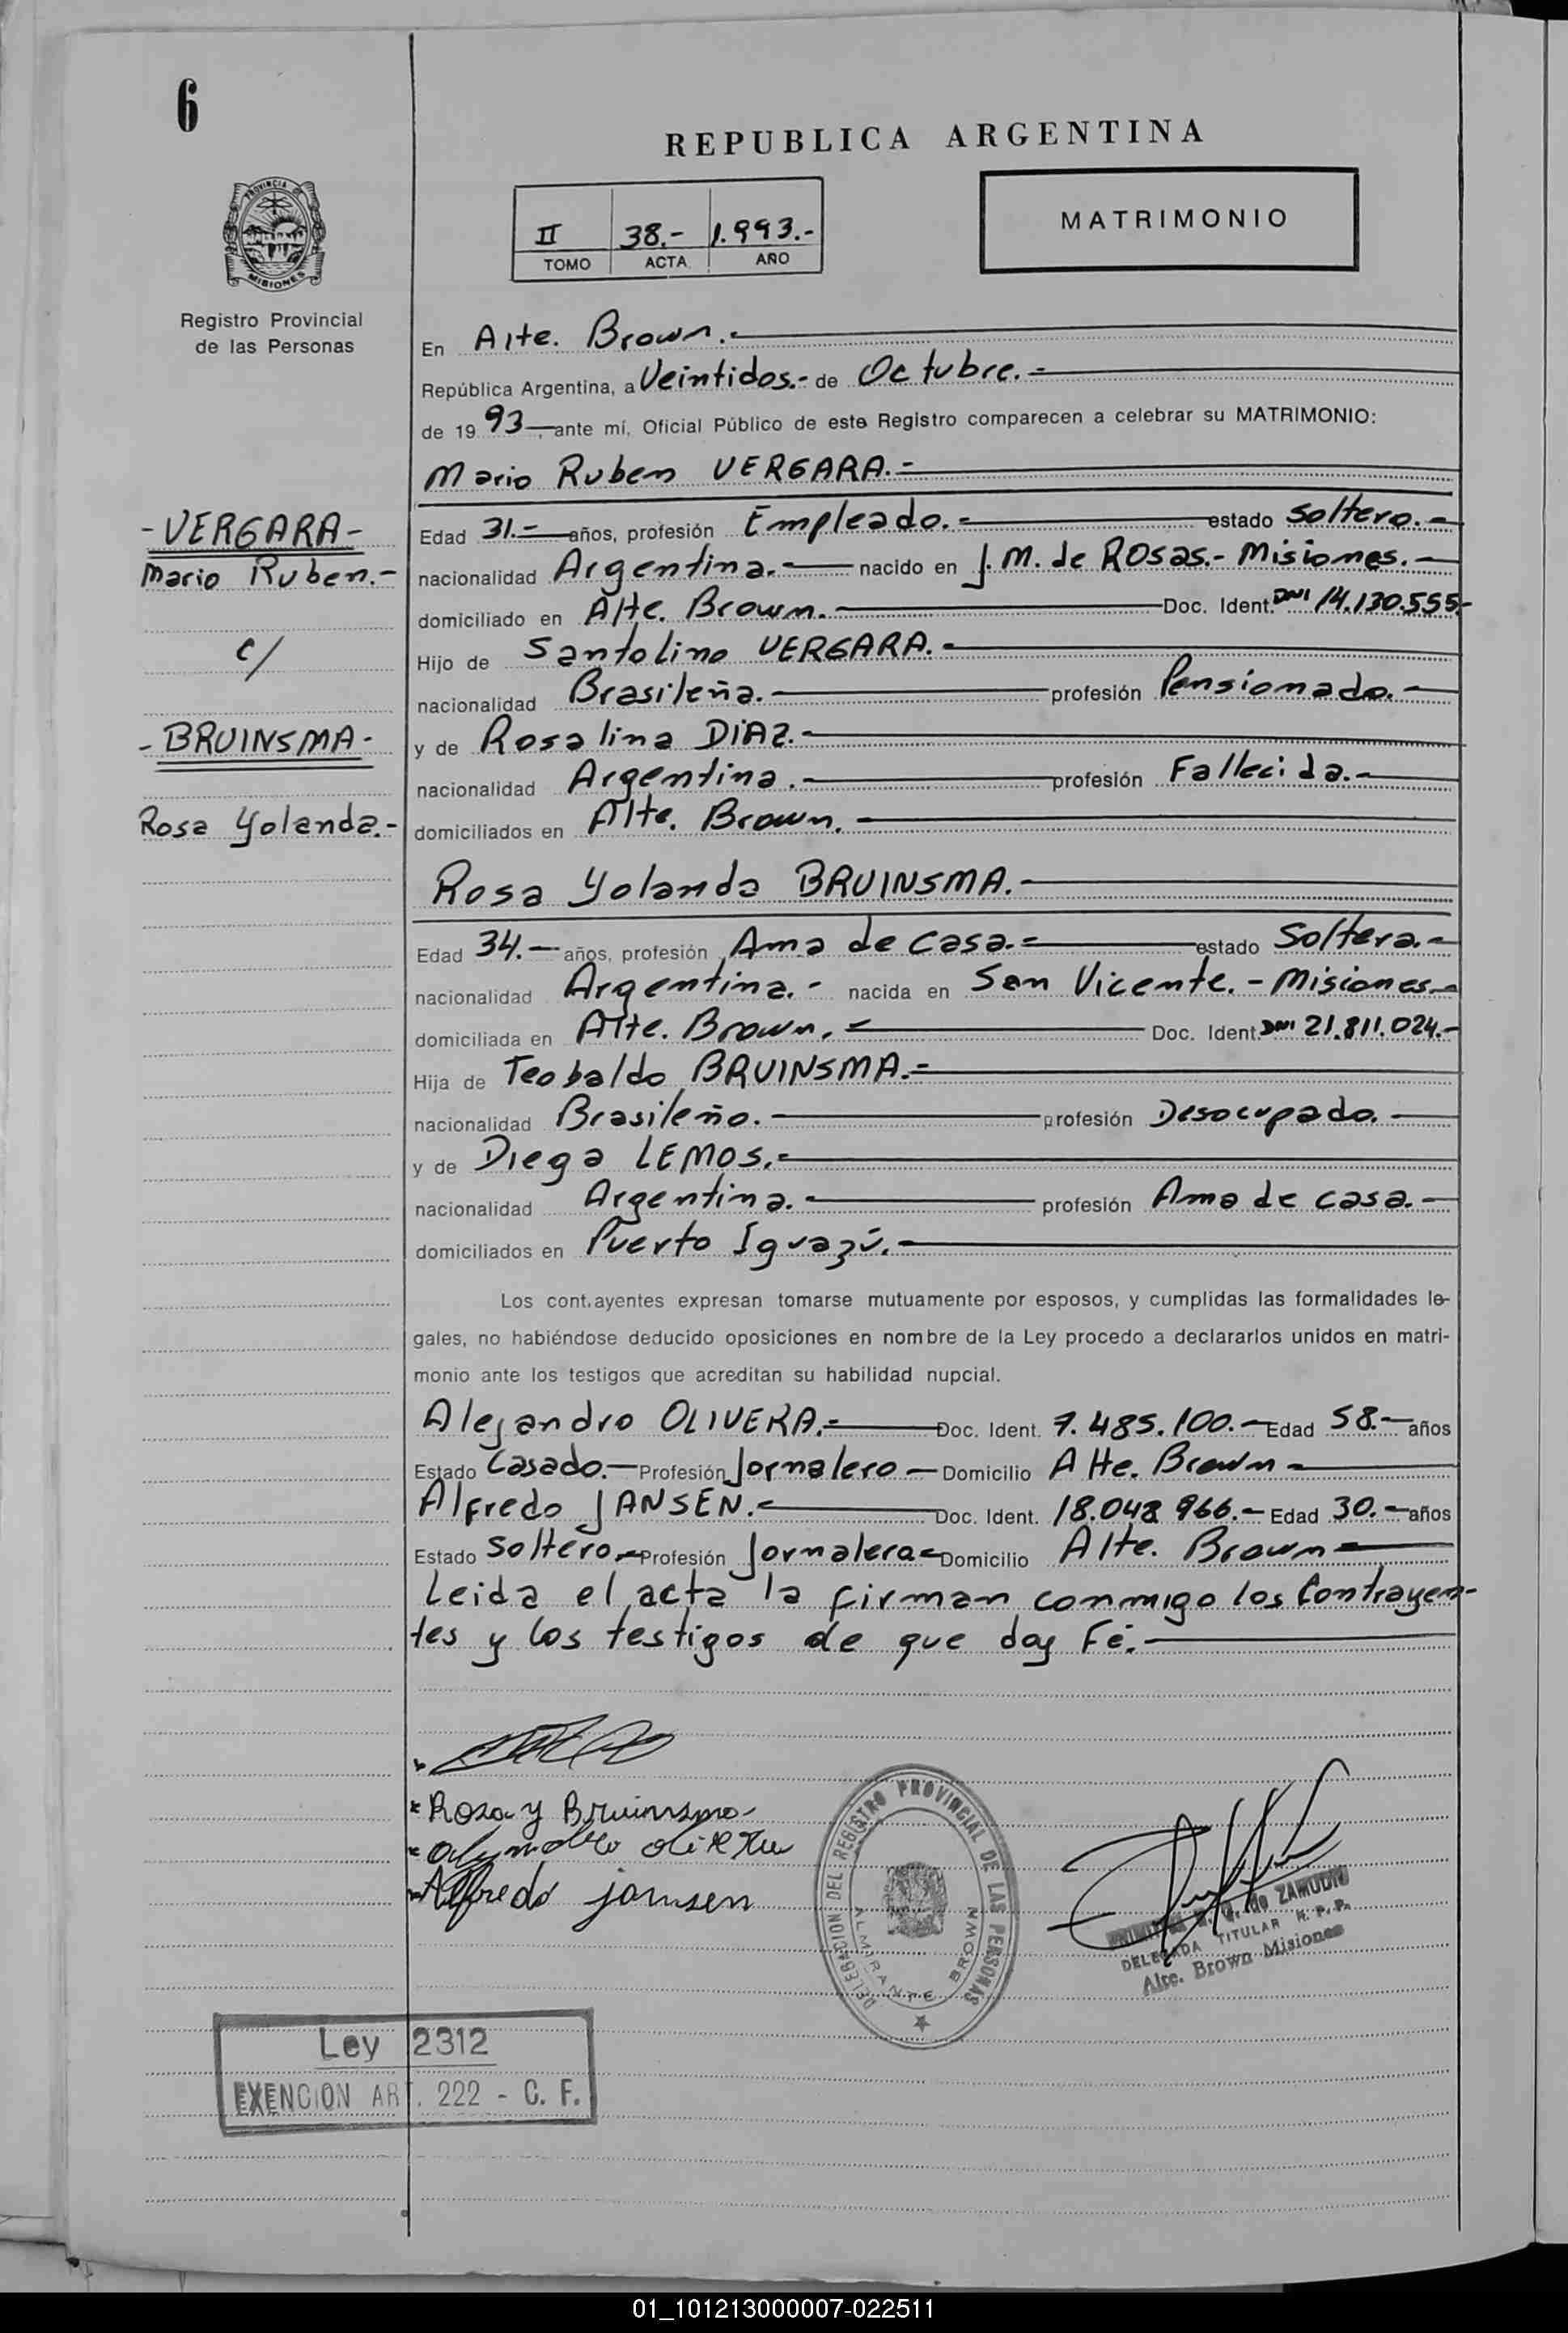 6
REPUBLICA ARGENTINA
PROVINCIA DE
MISIONES
Registro Provincial
de las Personas
II 38.- 1.993.-
TOMO ACTA AÑO
MATRIMONIO
En Alte. Brown.-
República Argentina, a Veintidos.- de Octubre.-
de 19 93, ante mí, Oficial Público de este Registro comparecen a celebrar su MATRIMONIO:
Mario Ruben VERGARA.-
- VERGARA -
Mario Ruben.-
c/
- BRUINSMA -
Rosa Yolanda.-
Edad 31.- años, profesión Empleado.- estado Soltero.-
nacionalidad Argentina.- nacido en J. M. de ROSAS.- Misiones.-
domiciliado en Alte. Brown.- Doc. Ident. DNI 14.130.555.-
Hijo de Santolino VERGARA.-
nacionalidad Brasileña.- profesión Pensionado.-
y de Rosalina DIAZ.-
nacionalidad Argentina.- profesión Fallecida.-
domiciliados en Alte. Brown.-
Rosa Yolanda BRUINSMA.-
Edad 34.- años, profesión Ama de casa.- estado Soltera.-
nacionalidad Argentina.- nacida en San Vicente.- Misiones.-
domiciliada en Alte. Brown.- Doc. Ident. DNI 21.811.024.-
Hija de Teobaldo BRUINSMA.-
nacionalidad Brasileño.- profesión Desocupado.-
y de Diega LEMOS.-
nacionalidad Argentina.- profesión Ama de casa.-
domiciliados en Puerto Iguazú.-
Los cont.ayentes expresan tomarse mutuamente por esposos, y cumplidas las formalidades le-
gales, no habiéndose deducido oposiciones en nombre de la Ley procedo a declararlos unidos en matri-
monio ante los testigos que acreditan su habilidad nupcial.
Alejandro OLIVERA.- Doc. Ident. 7.485.100.- Edad 58.- años
Estado Casado.- Profesión Jornalero - Domicilio Alte. Brown -
Alfredo JANSEN.- Doc. Ident. 18.048 966.- Edad 30.- años
Estado Soltero.- Profesión Jornalera - Domicilio Alte. Brown -
Leida el acta la firman conmigo los Contrayen-
tes y los testigos de que doy Fé.-
Rosa Y Bruinsma
Alfredo jansen
DELEGACION DEL REGISTRO PROVINCIAL DE LAS PERSONAS
ALMIRANTE BROWN
de ZAMUDIO
DELEGADA TITULAR R. P. P.
Alte. Brown Misiones
Ley 2312
EXENCION ART. 222 - C. F.
01_101213000007-022511